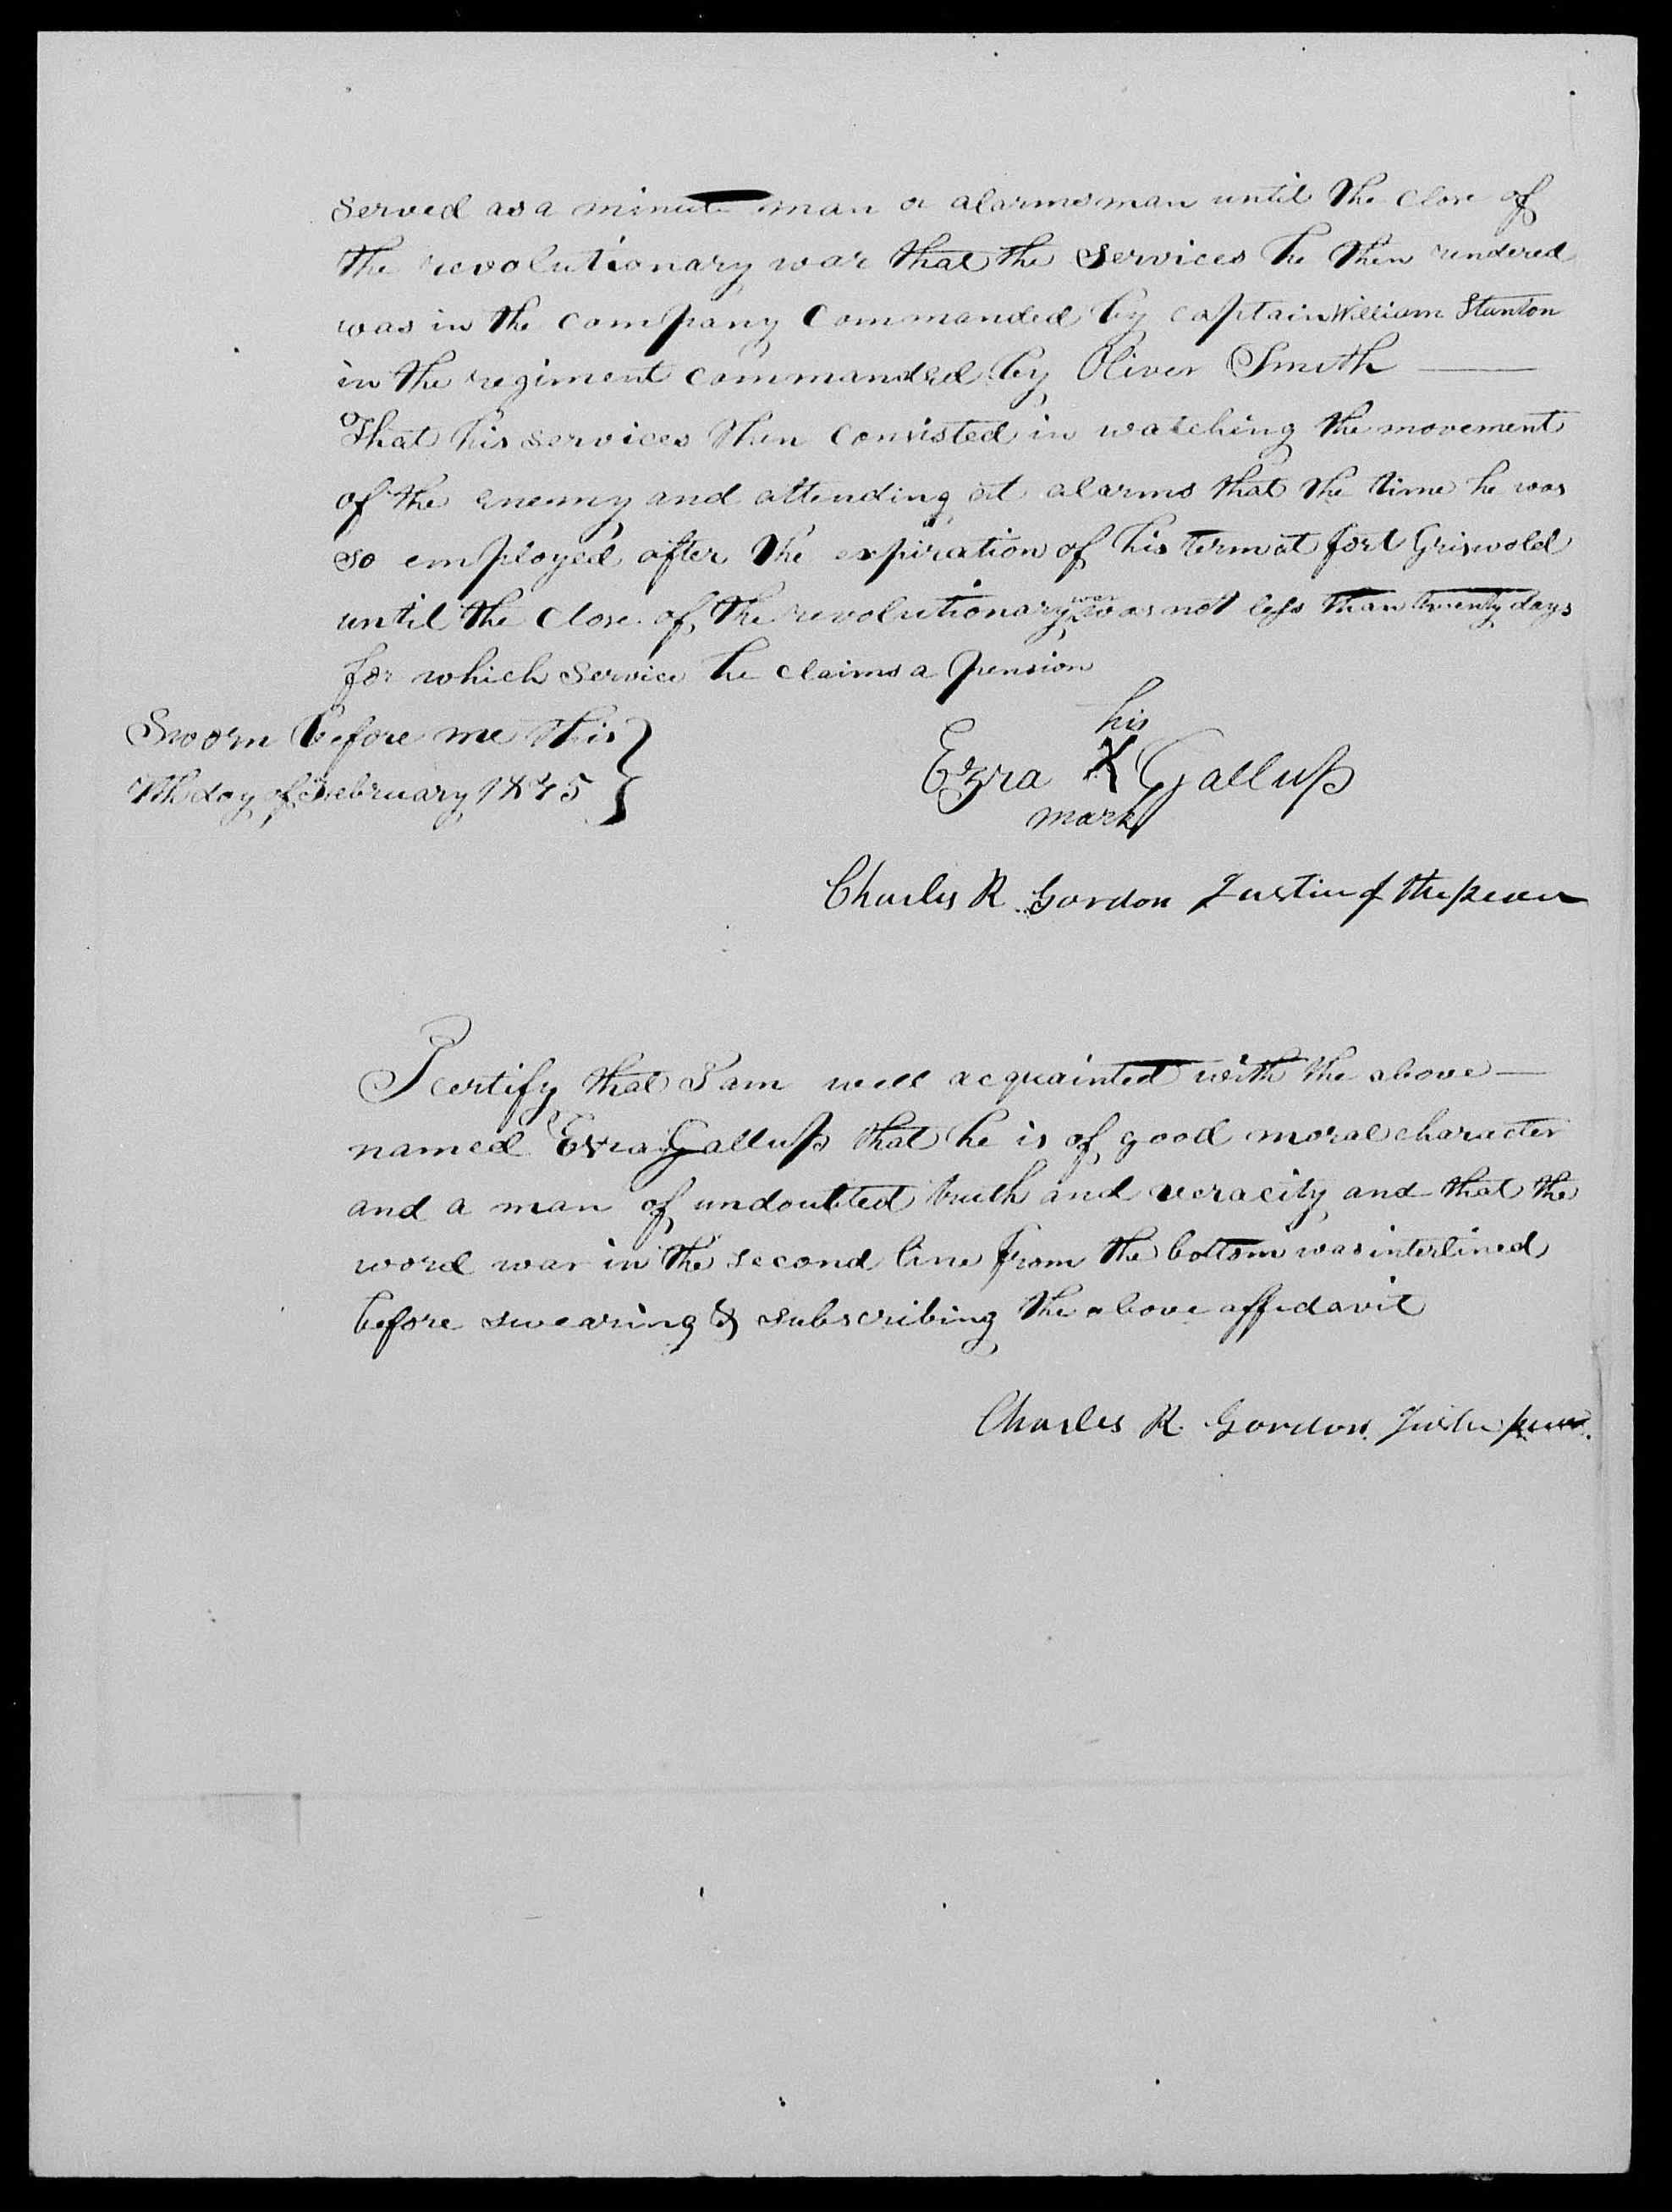 served as a minute man or alarmsman until the close of
the revolutionary war that the services he then rendered
was in the company commanded by captain William Stanton
in the regiment commanded by Oliver Smith
That his services then consisted in watching the movement
of the enemy and attending at alarms that the time he was
so employed after the expiration of his term at fort Griswold
until the close of the revolutionary war was not less than twenty days
for which service he claims a pension
Sworn before me this
7th day of February 1845
his
Ezra X Gallup
mark
Charles R. Gordon Justice of the peace
I certify that I am well acquainted with the above
named Ezra Gallup that he is of good moral character
and a man of undoubted truth and veracity and that the
word war in the second line from the bottom was interlined
before swearing & subscribing the above affidavit
Charles R. Gordon Justice peace